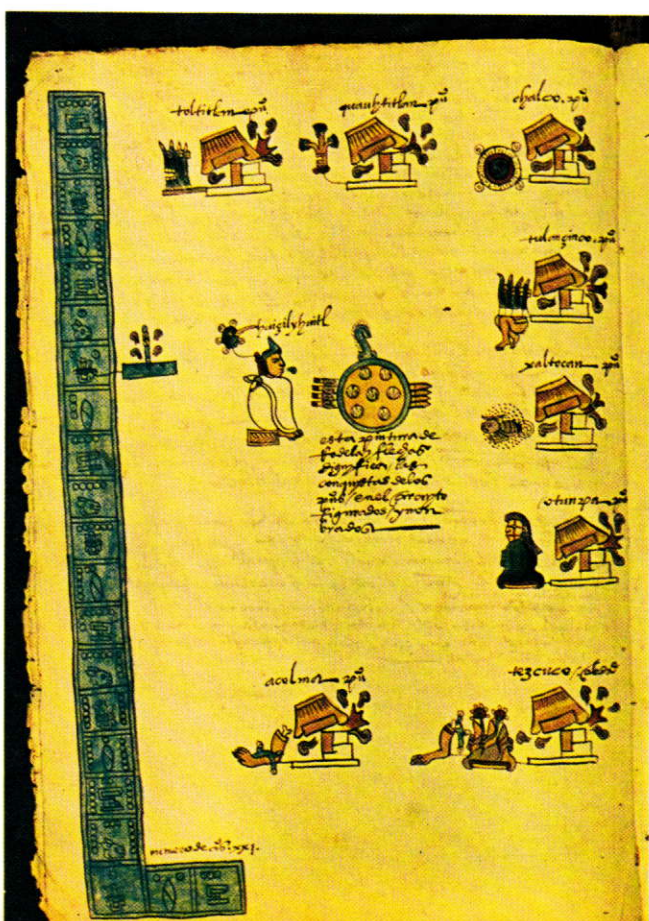 toltitlan. puº
quauhtitlan puº
chalco. puº
tulançinco. puº
huiçilyhuitl
xaltocan puº
esta pintura de
Rodela y flechas
significa / las
conquistas delos
puºs / en el
figurados / y nom
brados
otunpa puº
acolma puº
tezcuco / çibdad
numero de años. xxi.